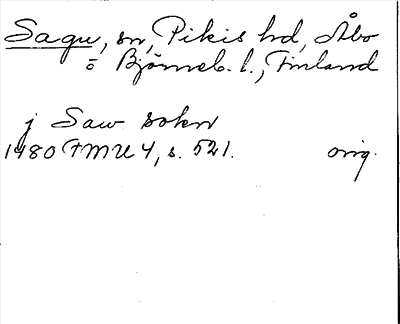 Sagu, sn, Pikis hd, Åbo
o Björneb. l., Finland
j Saw sokn
1480 FMU 4, s. 521. orig.